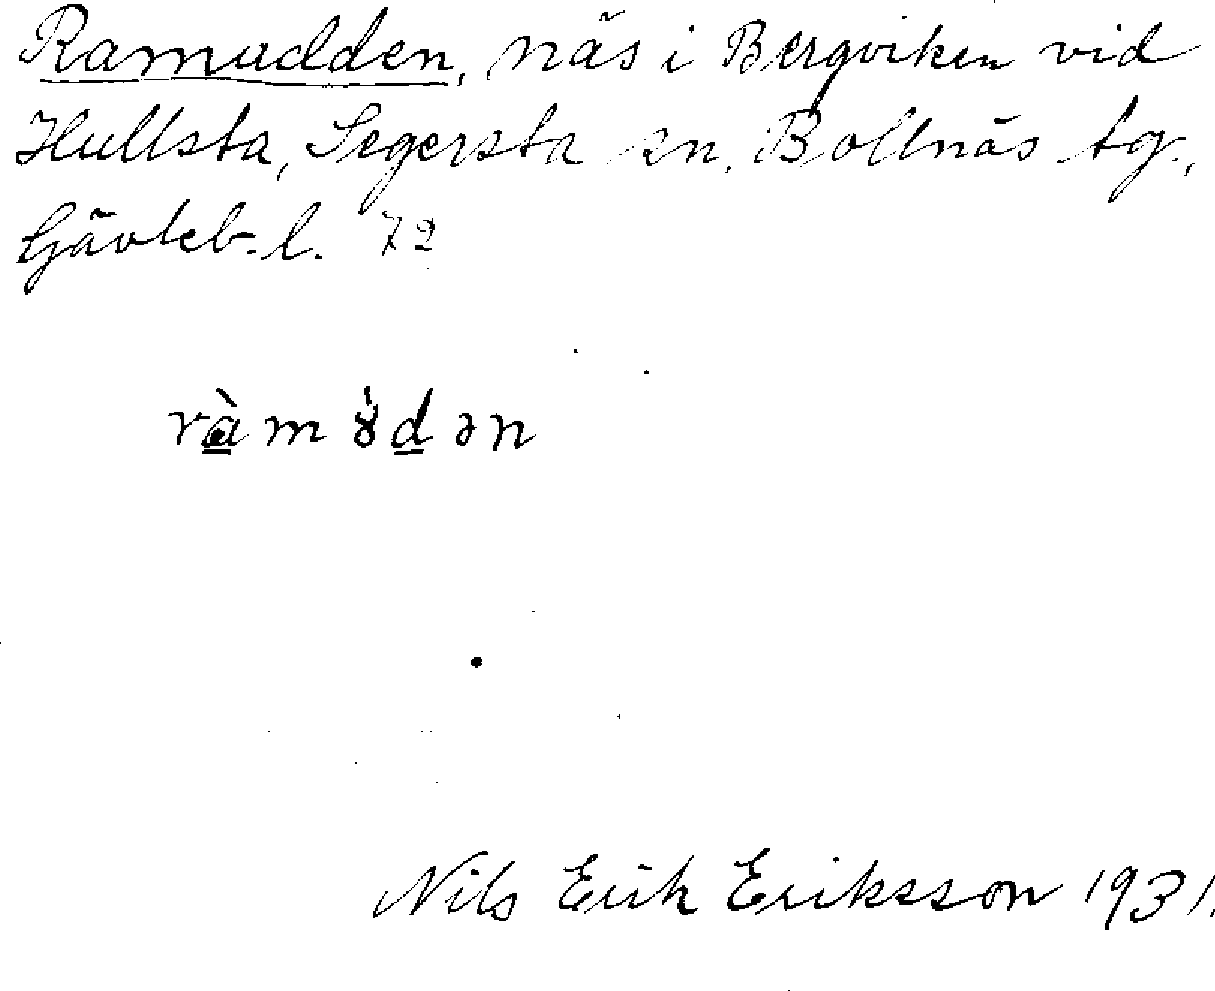 Ramudden, näs i Bergviken vid
Hullsta, Segersta sn, Bollnäs tg.,
Gävleb. l. 72
ràmɤ̀dən
Nils Erik Eriksson 1931.